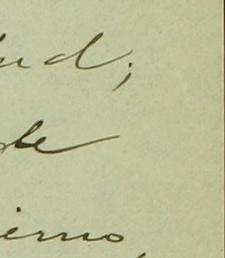 ud;
de
ierno,